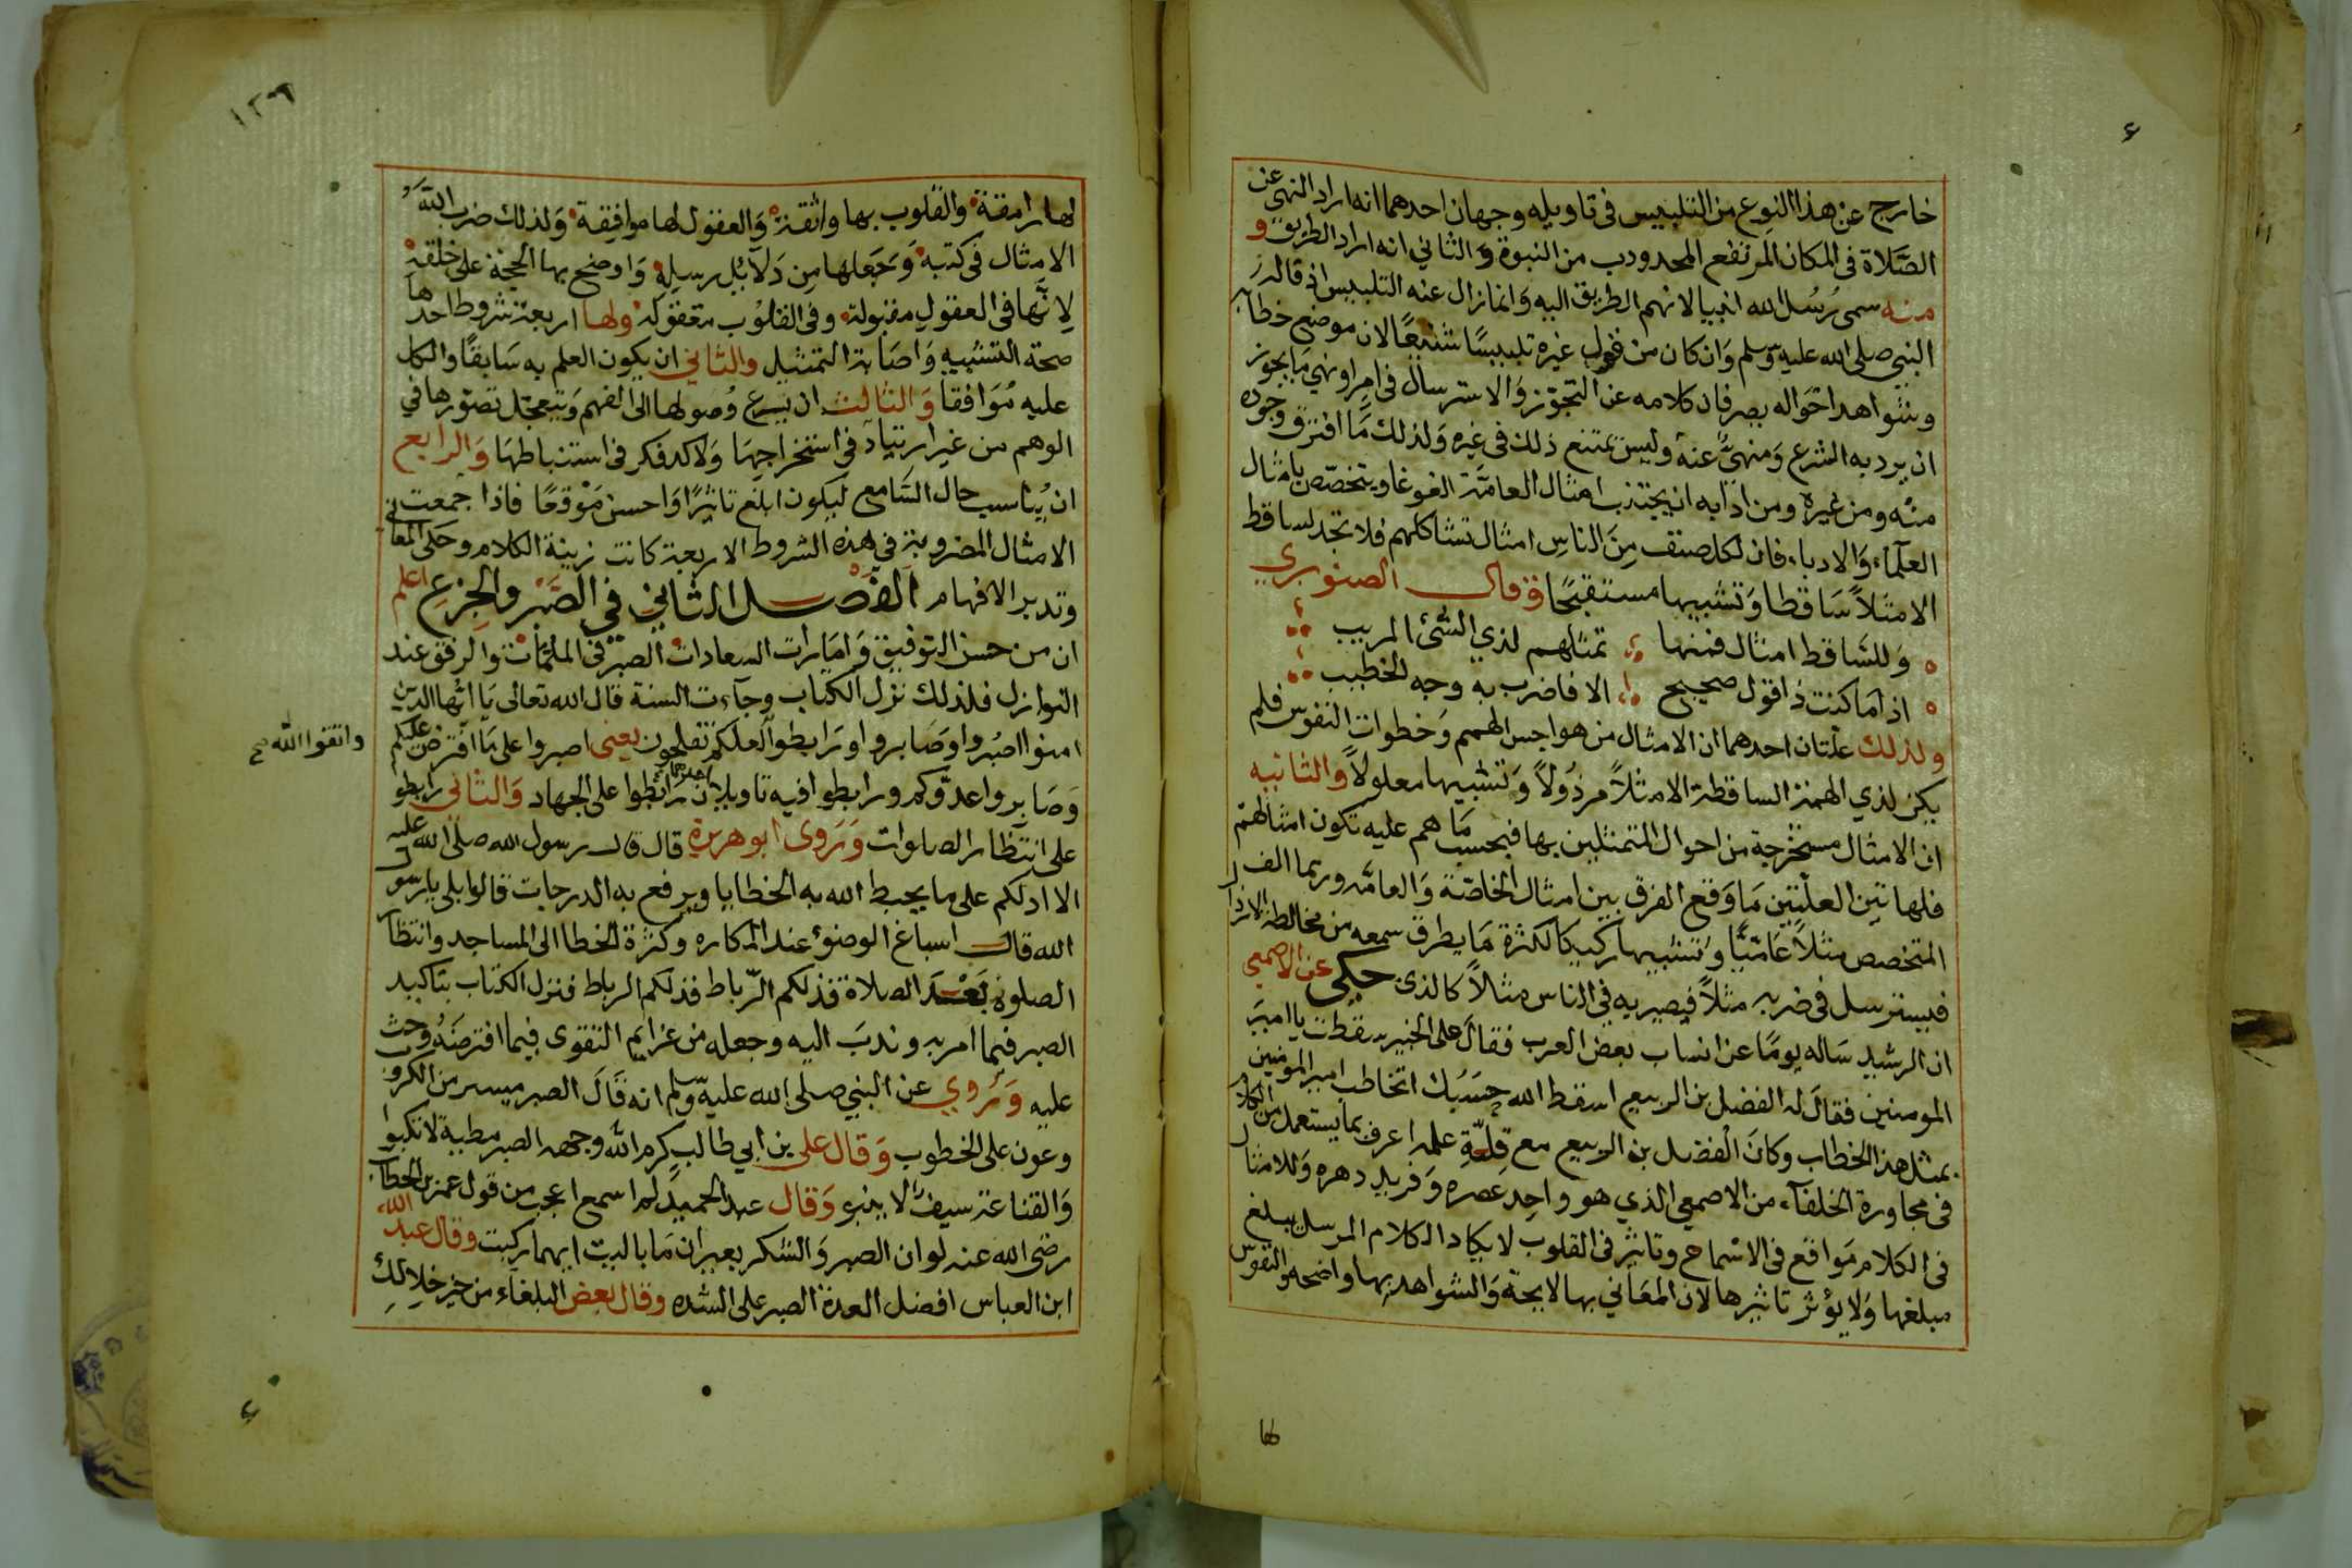 خارج عن هذا النوع من التلبيس فى تاويله وجهان احدهما انه اراد النهى عن
الصَّلاة فى المكان المرتفع المحدودب من النبوة وَالثاني انه اراد الطريق و
منه سمى رُسُل الله انبيا لانهم الطريق اليه وَانما زال عنه التلبيس اذ قاله
النبى صلى الله عليه وسلم وَان كان من قول غيره تلبيسًا شنيعًا لان موضع خطابه
وشواهد احوَاله يصرفان كلامه عن التجوّز وَالاسترسال فى امرٍ اونهي مَا يجوز
ان يرد به الشرع وَمنهيٌّ عنه وليس يمتنع ذلك فى غيره وَلذلك مَا افترق وجوه
منْه ومن غيره ومن ادابه ان يجتنب امثال العامّة الغوغا ويتخصّص بامثال
العلَمآء وَالادباء فان لكل صنف مِنَ الناس امثال تشاكلهم فلا تجد لساقط
الا مثلاً سَاقطا وَتشبيها مستقبحًا وقال الصنوبري
وَللسَّاقط امثال فمنها تمثلهم لذي الشئ المريب
اذ اما كنت ذا قول صحيح الا فاضرب به وجه الخطيب
ولذلك علّتان احدهما ان الامثال من هواجس الهمم وَخطوات النفوس فلم
يكن لذي الهمة الساقطة الا مثلاً مرذُولاً وَتشبيها معلولاً والثانيه
ان الامثال مستخرجة من احوال المتمثلين بها فبحسب مَا هم عليه تكون امثالهم
فلهاتين العلّتين مَا وَقع الفرق بين امثال الخاصّة وَالعامّه وربما الف
المتخصص مثلاً عَاميًّا وتشبيها ركيكا لكثرة مَا يطرق سمعه من مخالطة الارذال
فيسترسل فى ضربه مثلاً فيصير به فى الناس مثالاً كالذى حكى عن الاصمعى
ان الرشيد سَاله يومًا عن انساب بعض العرب فقالَ على الخبير سقطت يا امير
المومنين فقالَ له الفضل بن الربيع اسقط الله جسَبُك اتخاطب امير المومنين
بمثل هذا الخطاب وكانَ الفضل بن الربيع مع قلّةِ علمه اعرف بما يستعمل من الكلام
فى محاورة الخلفآء من الاصمعي الذي هو واحِد عصره وَفريد دهره وَللامثال
فى الكلام مَواقع فى الاسماع وتاثير فى القلوب لا يكاد الكلام المرسل يبلغ
مبلغها وَلا يؤثر تاثيرها لان المعَاني بها لايحة وَالشواهد بها واضحه والنفوس
لها
١٢٦
لها رامقة والقلوب بها واثقة وَالعقول لها موافقة وَلذلك ضرب الله
الامثال فى كتبه وَجَعلها من دَلآئل رسله وَاوضح بها الحجّة على خلقه
لِانّها فى العقول مقبولة وفى القلُوب معقوله ولها اربعة شروط احدها
صحة التشبيه وَاصَابة التمثيل والثاني ان يكون العلم به سَابقًا والكل
عليه مُوَافقا وَالثالث ان يسرع وُصولها الى الفهم وَيتعجّل تصوّرها في
الوهم من غير ارتياد في استخراجهَا وَلا كد فكر فى استنباطهَا وَالرابع
ان يُناسب حال السَّامع ليكون ابلغ تاثيرًا وَاحسن مَوْقعًا فاذا جمعت
الامثال المضروبة فى هذه الشروط الاربعة كانت زينة الكلام وحَلى المعانى
وتدبر الافهام الفَصل الثاني فى الصَّبْر والجزع اعلم
ان من حسن التوفيق وَامَارات السعادات الصبر فى الملمّات والرفق عند
النوازل فلذلك نزل الكتاب وجآءت السنة قال الله تعالى يَا ايّها الذين
امنوا اصبُروا وَصَابروا وَرَابطوا لعلكم تفلحون يعنى اصبروا على مَا افترض عليكم
واتقوا الله صح
وَصَابروا عدوّكم ورابطوا فيه تاويلان احدهما رَابطوا على الجهاد وَالثانى رابطوا
على انتظار الصلوات وَرَوى ابوهريرة قال قال رسول الله صلى الله عليه
الا ادلكم على ما يحبط الله به الخطايا ويرفع به الدرجات قالوا بلى يارسول
الله قال اسباغ الوضوء عند المكاره وكثرة الخطا الى المساجد وانتظار
الصلوة بَعْد الصلاة فذلكم الرّباط فذلكم الرباط فنزل الكتاب بتاكيد
الصبر فيما امر به وندبَ اليه وجعله من عزايم التقوى فيما افترضَهُ وحث
عليه وَروي عن النبي صلى الله عليه وسلم انه قَالَ الصبر ميسر من الكروب
وعون على الخطوب وَقال على بن ابي طالب كرم الله وجهه الصبر مطية لا تكبوا
وَالقناعة سيفٌ لا ينبو وَقال عبد الحميد لم اسمع اعجب من قول عمر بن الخطاب
رضى الله عنه لوان الصبر وَالشكر بعيران مَا باليت ايهما ركبت وقال عبد الله
ابن العباس افضل العدة الصبر على الشده وقال بعض البلغاء من خير خلالك